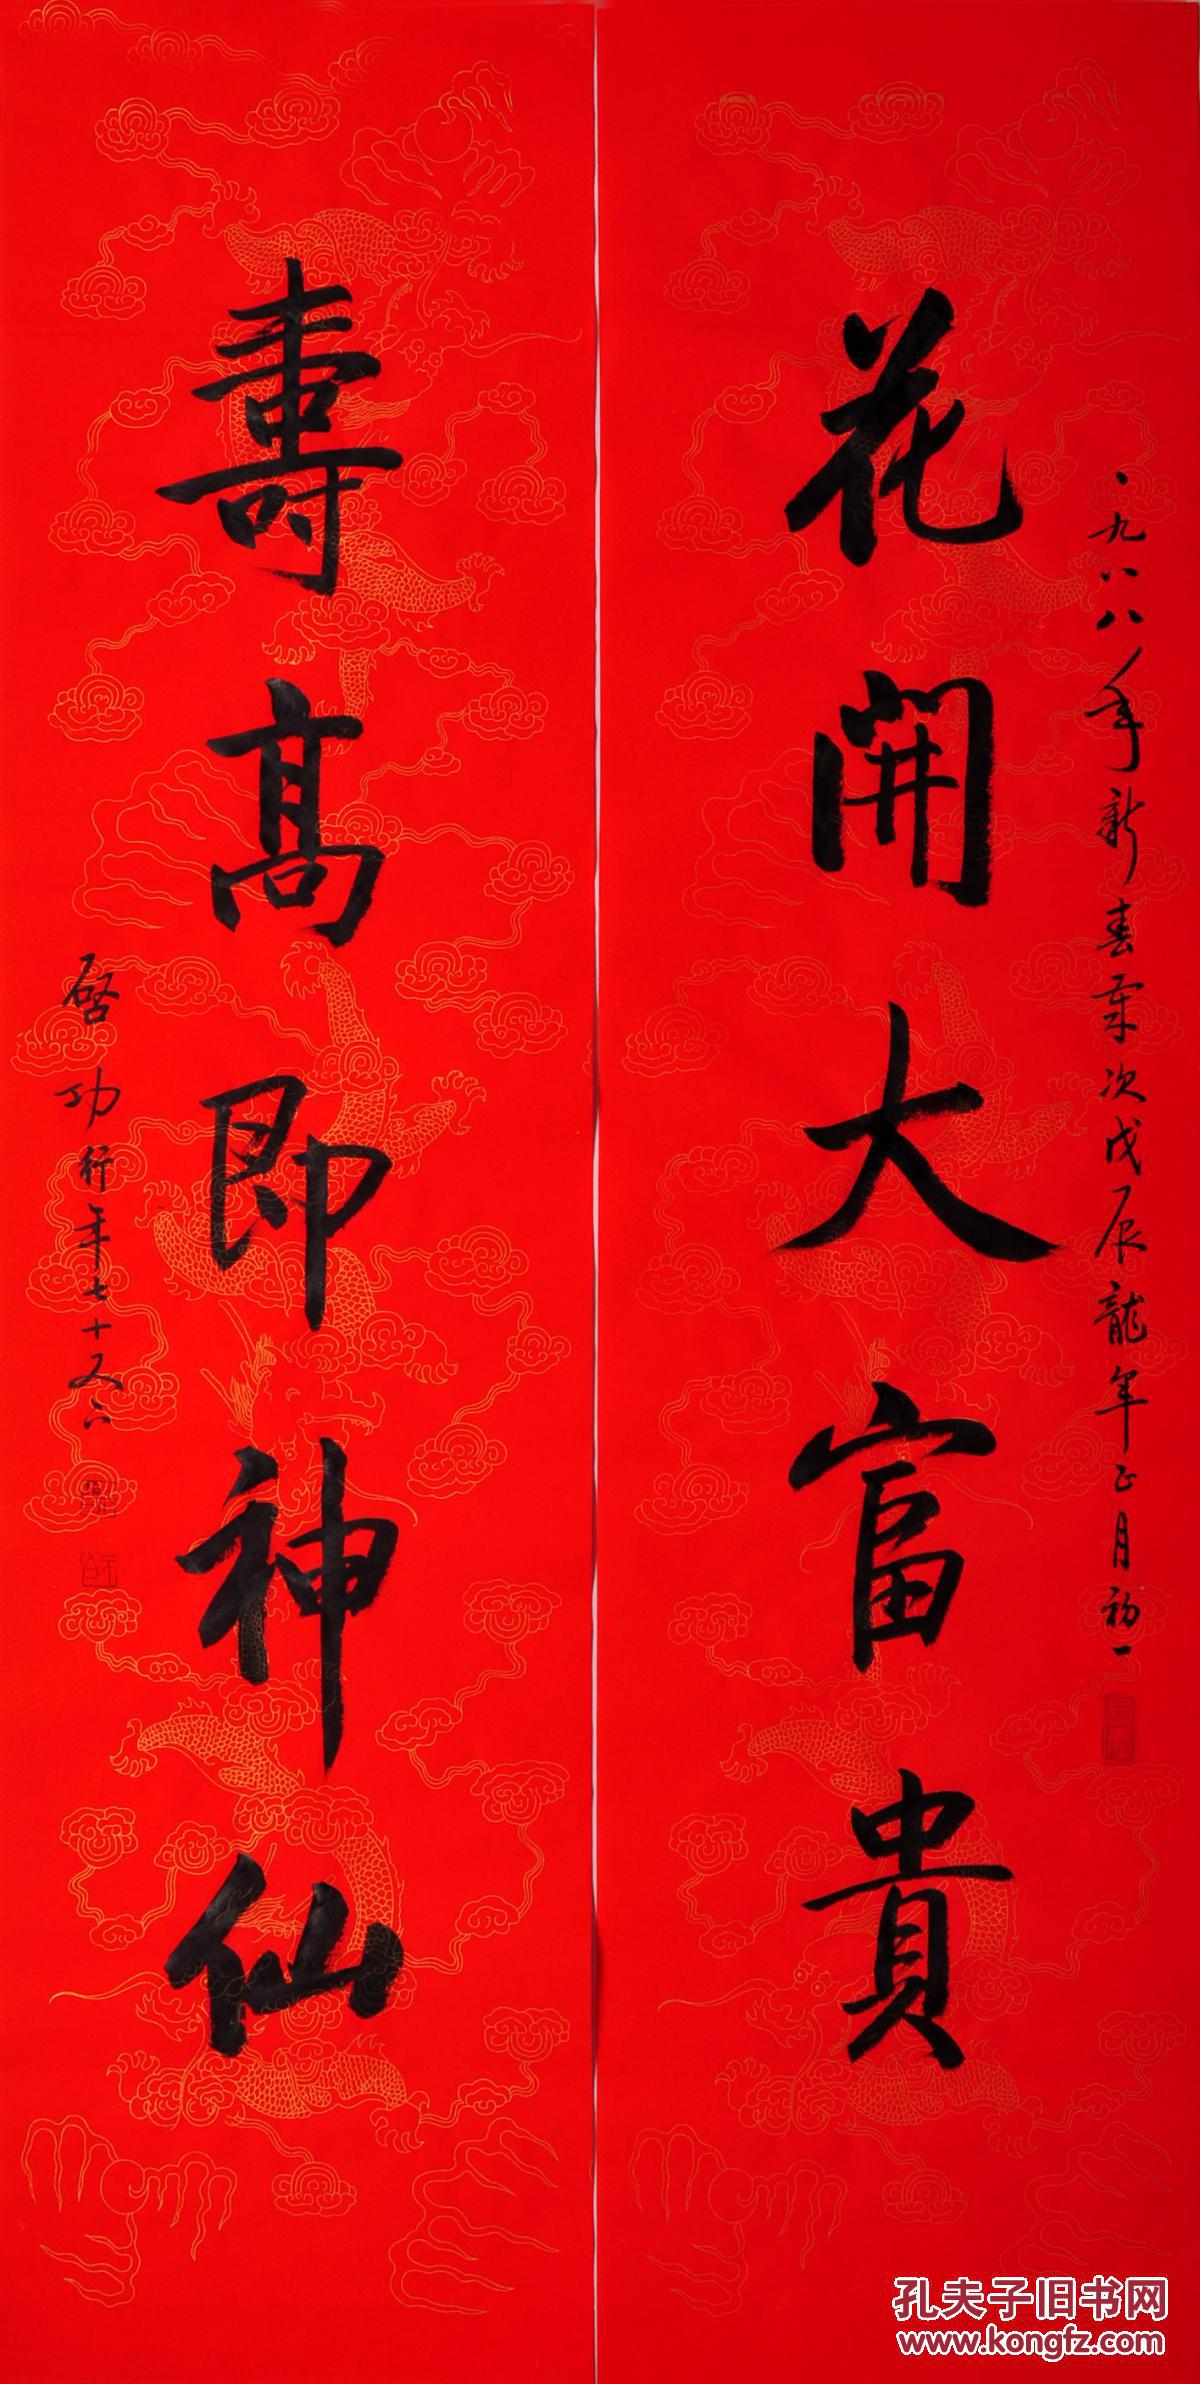 花開大富貴
一九八八年新春歲次戊辰龍年正月初一
壽高即神仙
啓功行年七十又六
孔夫子旧书网
www.kongfz.com